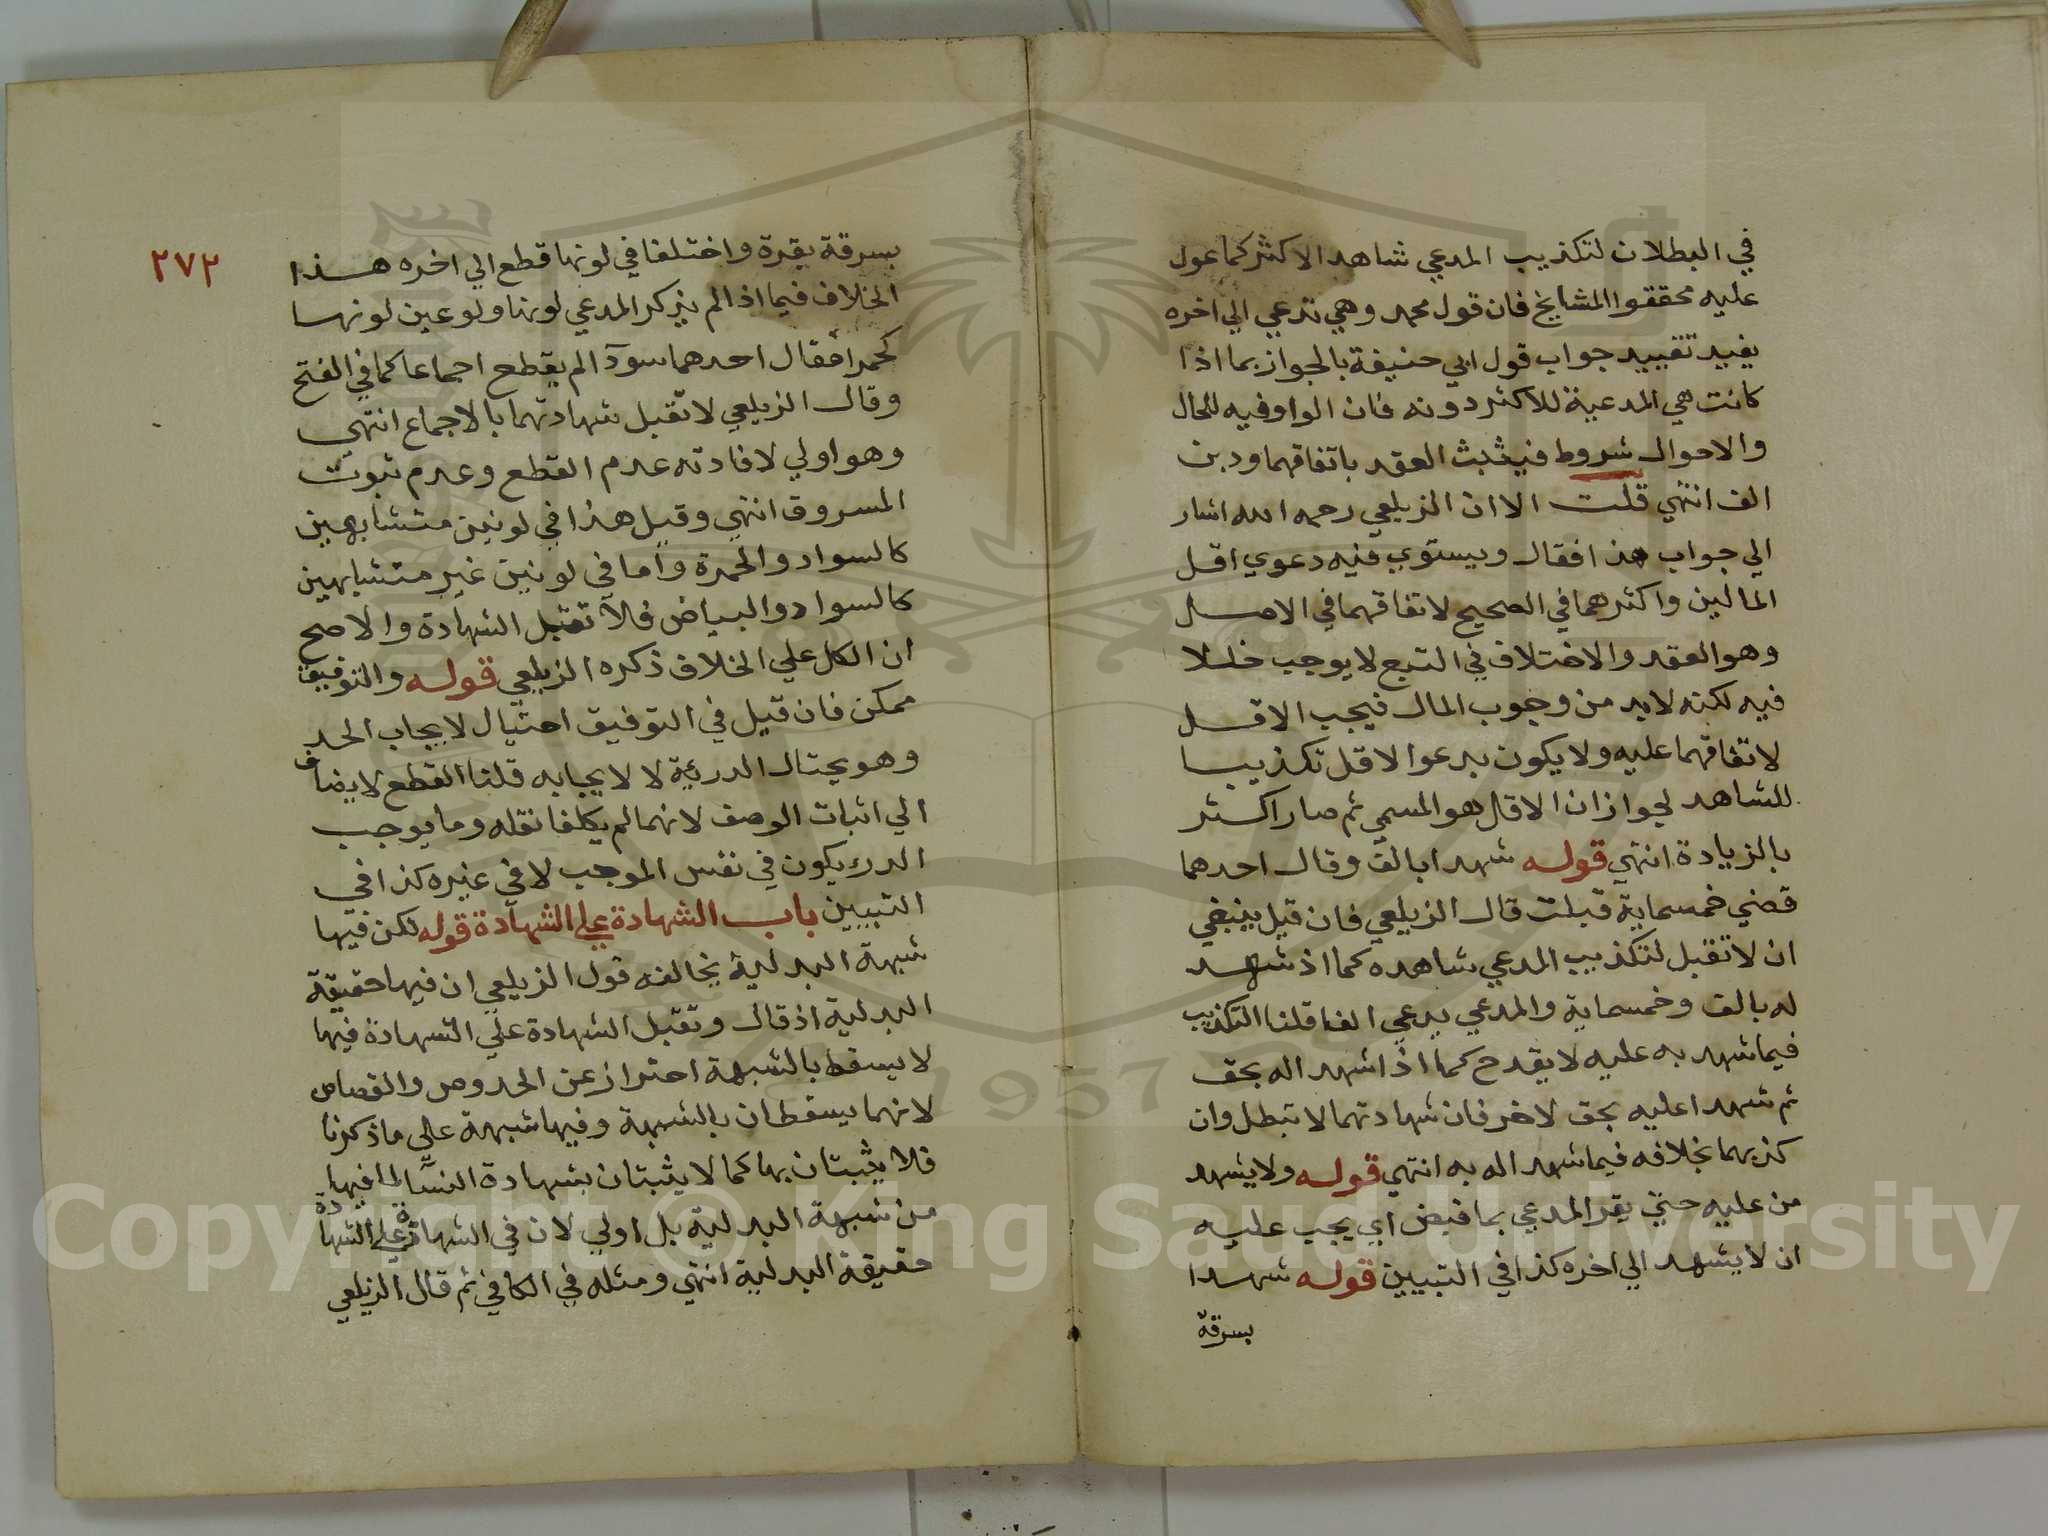 في البطلان لتكذيب المدعي شاهد الاكثر كما عول
عليه محققوا المشايخ فان قول محمد وهي تدعي الي اخره
يفيد تقييد جواب قول ابي حنيفة بالجواز بما اذا
كانت هي المدعية للاكثر دونه فان الواو فيه للحال
والاحوال شروط فيثبت العقد باتفاقهما ودين
الف انتهي قلت الا ان الزيلعي رحمه الله اشار
الي جواب هذا فقال ويستوي فيه دعوي اقل
المالين واكثرهما في الصحيح لاتفاقهما في الاصل
وهو العقد والاختلاف في التبع لا يوجب خللا
فيه لكنه لابد من وجوب المال فيجب الاقل
لاتفاقهما عليه ولا يكون بدعوا الاقل تكذيبا
للشاهد لجواز ان الاقل هو المسمي ثم صار اكثر
بالزيادة انتهي قوله شهدا بالف وقال احدهما
قضي خمسماية قبلت قال الزيلعي فان قيل ينبغي
ان لا تقبل لتكذيب المدعي شاهده كما اذ شهد
له بالف وخمسماية والمدعي يدعي الفا قلنا التكذيب
فيما شهد به عليه لا يقدح كما اذا شهدا له بحق
ثم شهدا عليه بحق لاخر فان شهادتهما لا تبطل وان
كذبهما بخلافه فيما شهدا له به انتهي قوله ولا يشهد
من عليه حتي يقر المدعي بما قبض اي يجب عليه
ان لا يشهد الي اخره كذا في التبيين قوله شهدا
بسرقة
٢٧٢
بسرقة بقرة واختلفا في لونها قطع الي اخره هذا
الخلاف فيما اذا لم يذكر المدعي لونها ولو عين لونها
كحمرا فقال احدهما سودا لم يقطع اجماعا كما في الفتح
وقال الزيلعي لا تقبل شهادتهما بالاجماع انتهي
وهو اولي لافادته عدم القطع وعدم ثبوت
المسروق انتهي وقيل هذا في لونين متشابهين
كالسواد والحمرة واما في لونين غير متشابهين
كالسواد والبياض فلا تقبل الشهادة والاصح
ان الكل علي الخلاف ذكره الزيلعي قوله والتوفيق
ممكن فان قيل في التوفيق احتيال لايجاب الحد
وهو يحتال لدرئية لا لايجابه قلنا القطع لا يضاف
الي اثبات الوصف لانهما لم يكلفا نقله وما يوجب
الدرء يكون في نفس الموجب لا في غيره كذا في
التبيين باب الشهادة علي الشهادة قوله لكن فيها
شبهة البدلية يخالفه قول الزيلعي ان فيها حقيقة
البدلية اذ قال وتقبل الشهادة علي الشهادة فيما
لا يسقط بالشبهة احتراز عن الحدود والقصاص
لانهما يسقطان بالشبهة وفيها شبهة علي ما ذكرنا
فلا يثبتان بها كما لا يثبتان بشهادة النسا لما فيها
من شبهة البدلية بل اولي لان في الشهادة علي الشهادة
حقيقة البدلية انتهي ومثله في الكافي ثم قال الزيلعي
Copyright © King Saud University
1957